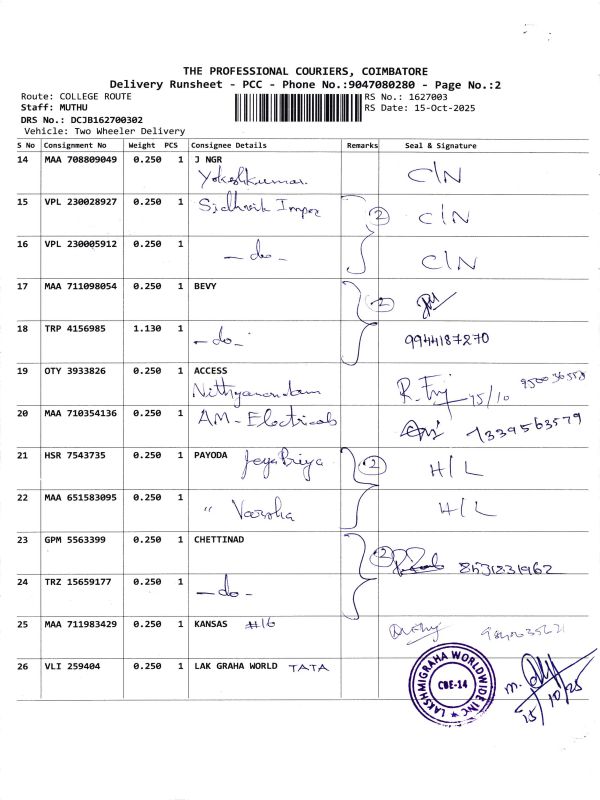 THE PROFESSIONAL COURIERS, COIMBATORE
Delivery Runsheet - PCC - Phone No.:9047080280 - Page No.:2
Route: COLLEGE ROUTE
RS No.: 1627003
Staff: MUTHU
RS Date: 15-Oct-2025
DRS No.: DCJB162700302
Vehicle: Two Wheeler Delivery
S No Consignment No Weight PCS Consignee Details Remarks Seal & Signature
14 MAA 708809049 0.250 1 J NGR
Yokeshkumar C/N
15 VPL 230028927 0.250 1 Sidhvik Impex 2 C/N
16 VPL 230005912 0.250 1
- do - C/N
17 MAA 711098054 0.250 1 BEVY 2
18 TRP 4156985 1.130 1 - do - 9944187270
19 OTY 3933826 0.250 1 ACCESS
Nithyanandam 15/10
20 MAA 710354136 0.250 1 AM-Electricals 7339563579
21 HSR 7543735 0.250 1 PAYODA JeyaPriya 2 H/L
22 MAA 651583095 0.250 1 " Varsha H/L
23 GPM 5563399 0.250 1 CHETTINAD 2 8531831962
24 TRZ 15659177 0.250 1 - do -
25 MAA 711983429 0.250 1 KANSAS #16
26 VLI 259404 0.250 1 LAK GRAHA WORLD TATA
LAKSHMIGRAHA WORLDWIDE INC
CBE-14
15/10/25